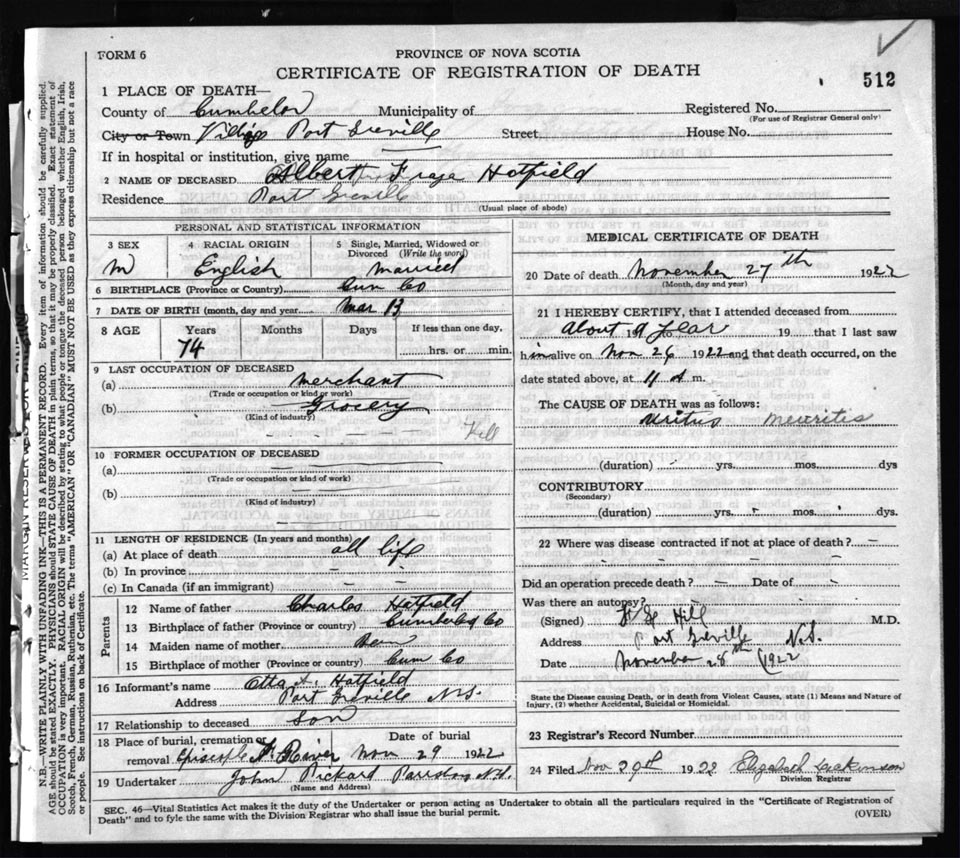 FORM 6
PROVINCE OF NOVA SCOTIA
CERTIFICATE OF REGISTRATION OF DEATH
512
1 PLACE OF DEATH—
County of Cumbelan Municipality of Registered No.
(For use of Registrar General only)
City or Town Port Greville Street House No.
If in hospital or institution, give name
2 NAME OF DECEASED. Albert Hatfield
Residence Port Greville
(Usual place of abode)
PERSONAL AND STATISTICAL INFORMATION
3 SEX 4 RACIAL ORIGIN 5 Single, Married, Widowed or
Divorced (Write the word)
M English Married
6 BIRTHPLACE (Province or Country) Cum Co
7 DATE OF BIRTH (month, day and year) Mar 13
8 AGE Years Months Days If less than one day,
74 hrs. or min.
9 LAST OCCUPATION OF DECEASED
(a) Merchant
(Trade or occupation or kind of work)
(b) Grocery
(Kind of industry)
10 FORMER OCCUPATION OF DECEASED
(a)
(Trade or occupation or kind of work)
(b)
(Kind of industry)
11 LENGTH OF RESIDENCE (In years and months)
(a) At place of death all life
(b) In province
(c) In Canada (if an immigrant)
Parents
12 Name of father Charles Hatfield
13 Birthplace of father (Province or country) Cumberland Co
14 Maiden name of mother
15 Birthplace of mother (Province or country) Cum Co
16 Informant's name Otta A. Hatfield
Address Port Greville N.S.
17 Relationship to deceased Son
18 Place of burial, cremation or Date of burial
removal Nov 29 1922
19 Undertaker John Pickard Parrsboro N.S.
(Name and Address)
MEDICAL CERTIFICATE OF DEATH
20 Date of death November 27th 1922
(Month, day and year)
21 I HEREBY CERTIFY, that I attended deceased from
About a year 19 that I last saw
him alive on Nov 26 1922 and that death occurred, on the
date stated above, at 11 A m.
The CAUSE OF DEATH was as follows:
Neuritis
(duration) yrs. mos. dys
CONTRIBUTORY
(Secondary)
(duration) yrs. mos. dys.
22 Where was disease contracted if not at place of death?
Did an operation precede death? Date of
Was there an autopsy?
(Signed) Hill M.D.
Address Port Greville N.S.
Date November 28th 1922
State the Disease causing Death, or in death from Violent Causes, state (1) Means and Nature of
Injury, (2) whether Accidental, Suicidal or Homicidal.
23 Registrar's Record Number
24 Filed Nov 29th 1922
Division Registrar
SEC. 46—Vital Statistics Act makes it the duty of the Undertaker or person acting as Undertaker to obtain all the particulars required in the "Certificate of Registration of
Death" and to fyle the same with the Division Registrar who shall issue the burial permit.
(OVER)
N.B.—WRITE PLAINLY WITH UNFADING INK—THIS IS A PERMANENT RECORD. Every item of information should be carefully supplied.
AGE should be stated EXACTLY. PHYSICIANS should STATE CAUSE OF DEATH in plain terms, so that it may be properly classified. Exact statement of
OCCUPATION is very important. RACIAL ORIGIN will be described by stating to what people or tongue the deceased person belonged whether English, Irish,
Scotch, French, German, Russian, Ruthenian, etc. The terms "AMERICAN" OR "CANADIAN" MUST NOT BE USED as they express citizenship but not a race
or people. See instructions on back of Certificate.